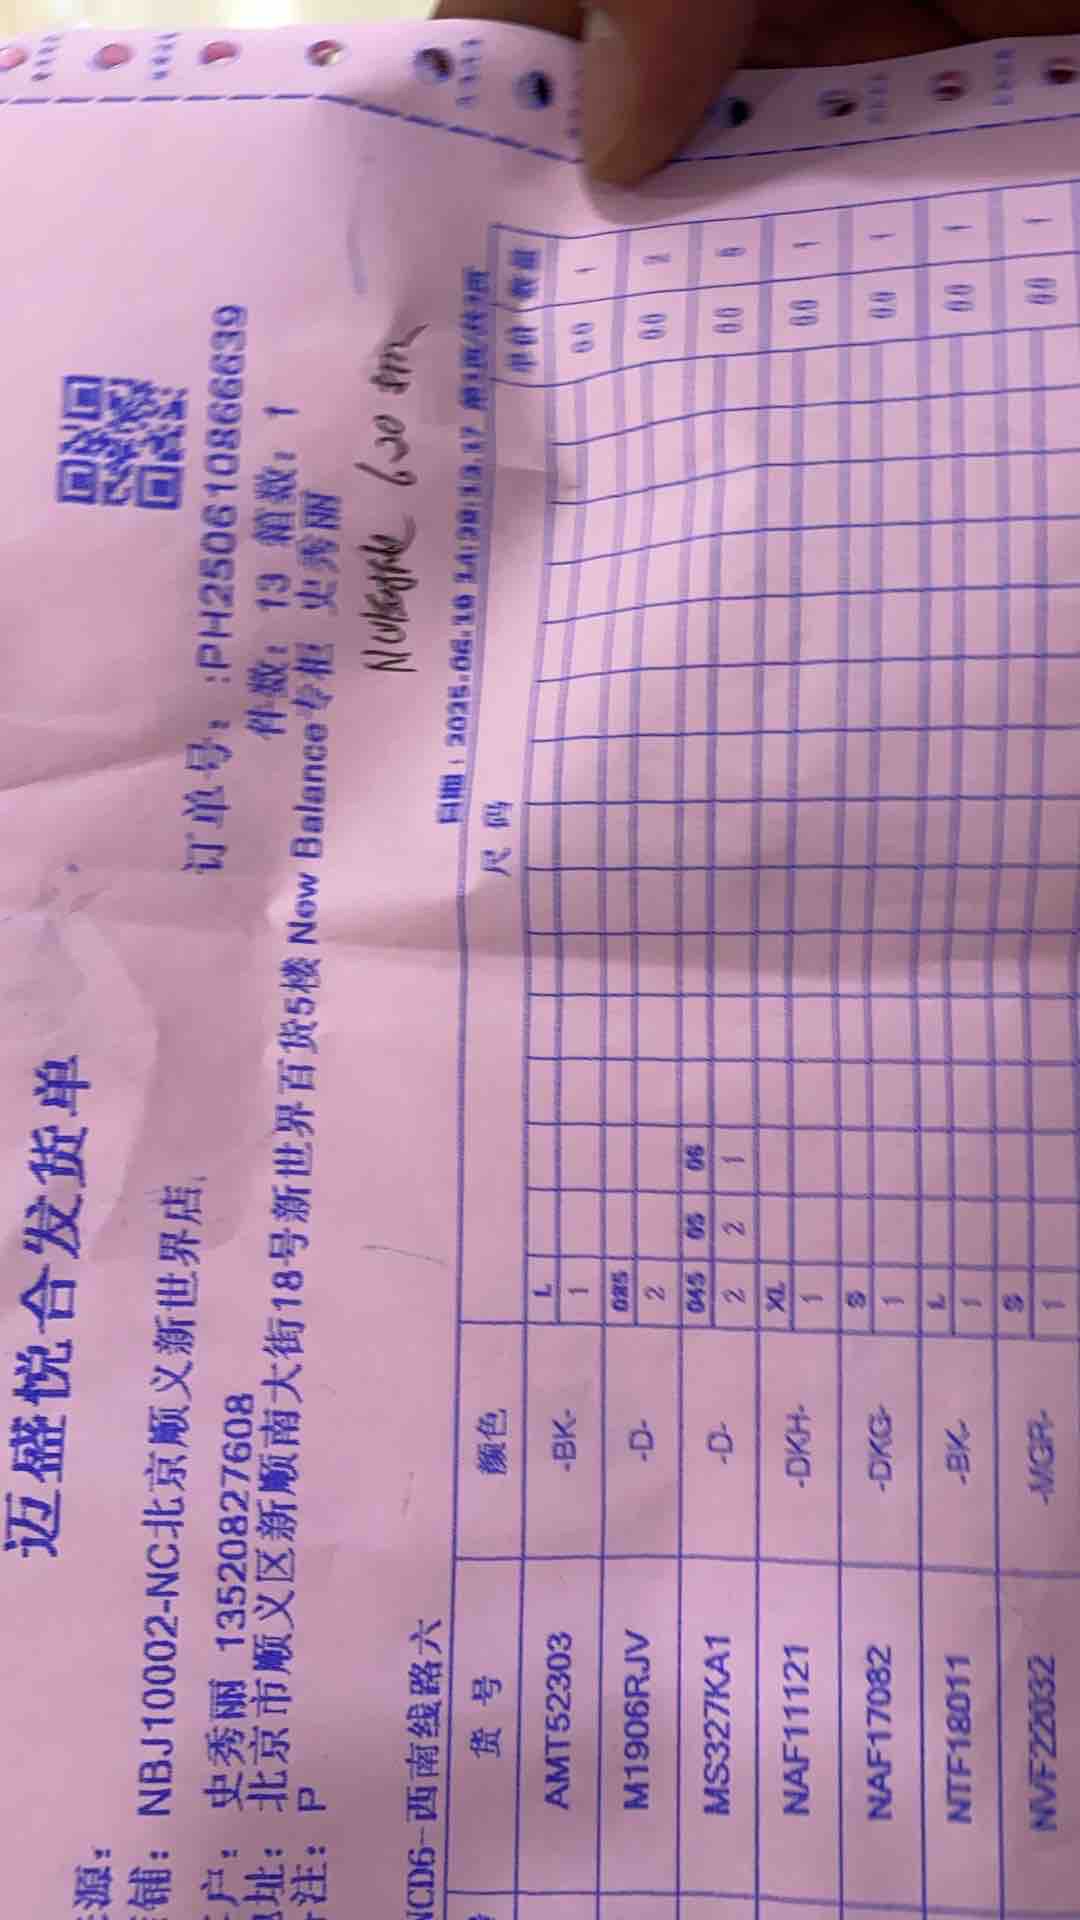 迈盛悦合发货单
源：
订单号：:PH25061086639
铺：NBJ10002-NC北京顺义新世界店
件数：13 箱数：1
户：史秀丽 13520827608
址：北京市顺义区新顺南大街18号新世界百货5楼 New Balance专柜 史秀丽
注：P
NCD6-西南线路六
货号 颜色 尺码 单价 数量
L
AMT52303 -BK- 1 0.0 1
085
M1906RJV -D- 2 0.0 2
045 05 06
MS327KA1 -D- 2 2 1 0.0
XL
NAF11121 -DKH- 1 0.0 1
S
NAF17082 -DKG- 1 0.0 1
L
NTF18011 -BK- 1 0.0 1
S
NVF22032 -MGR- 1 0.0 1